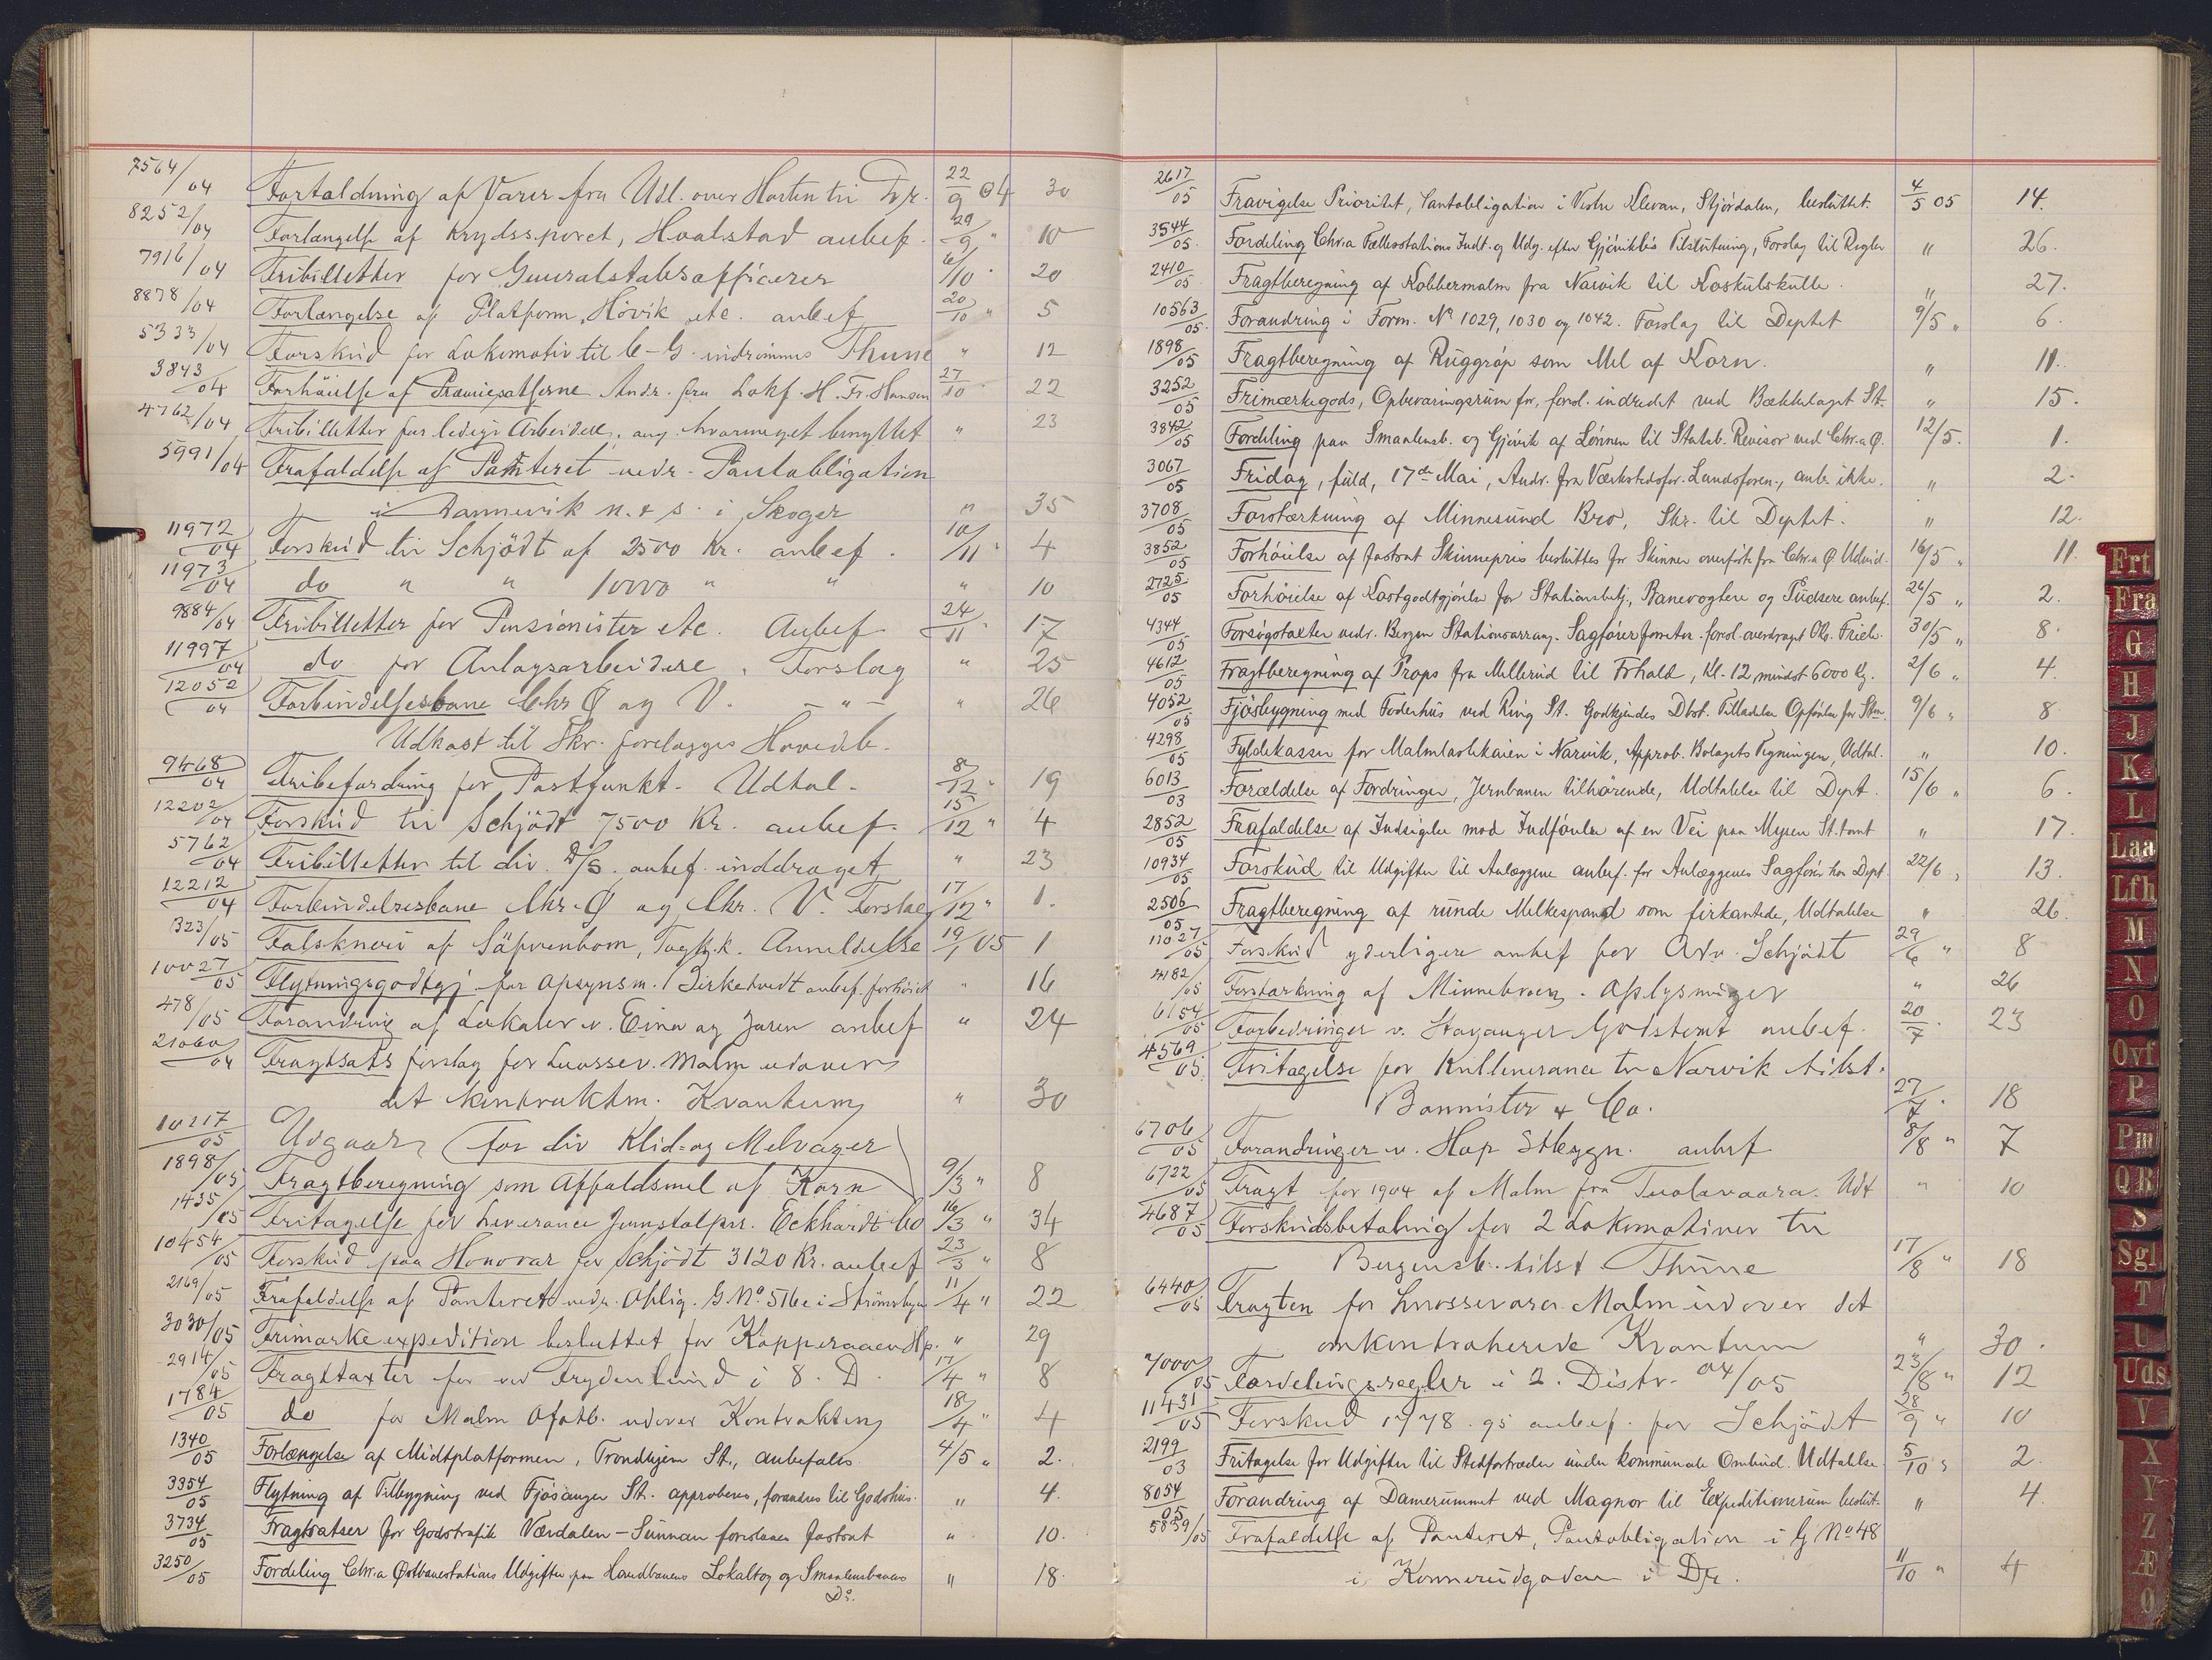 7564/04 Fortoldning af Varer fra Udl. over Horten til Dr. 22/9 04 30
8252/04 Forlængelse af Krydssporet, Hvalstad anbef. 29/9 " 10
7916/04 Fribilletter for Generalstabsofficerer 6/10 " 20
8878/04 Forlængelse af Platform, Hövik etc. anbef 20/10 " 5
5333/04 Forskud for Lokomotiv til C-G. indrömmes Thune " 12
3843/04 Forhöielse af Præmiesatserne Andr. fra Lokf. H. Fr. Hansen 27/10 " 22
4762/04 Fribilletter for ledige Arbeidere, ang. hvormeget benyttet " 23
5991/04 Frafaldelse af Panteret vedr. Pantobligation
i Rannevik n. & s. i Skoger " 35
11972/04 Forskud til Schjödt af 2500 Kr. anbef. 10/11 " 4
11973/04 do " " 10000 " " " 10
9884/04 Fribilletter for Pensionister etc. Anbef. 24/11 " 17
11997/04 do for Anlægsarbeidere. Forslag " 25
12052/04 Forbindelsesbane Chr Ø og V. - " - " 26
Udkast til Skr. forelægges Hovedb.
9468/04 Fribefordring for Postfunkt. Udtal. 8/12 " 19
12202/04 Forskud til Schjödt 7500 Kr. anbef. 15/12 " 4
5762/04 Fribilletter til div. D/S. anbef. inddraget " 23
12212/04 Forbindelsesbane Chr. Ø og Chr. V. Forslag 17/12 " 1.
323/05 Falskneri af Togk.k. Anmeldelse 19/1 05 1
10027/05 Flytningsgodtgj. for Opsynsm. Birketvedt anbef. forhöiet " 16
478/05 Forandring af Lokaler v. Eina og Jaren anbef " 24
21060/04 Fragtsats forslag for Luossav. Malm udover
det kontraktm. Kvantum " 30
10217/05 Udgaar (for div Klid- og Melvarer
1898/05 Fragtberegning som Affaldsmel af Korn 9/3 " 8
1435/05 Fritagelse for Leverance Jernstolper. Eckhardt & Co 16/3 " 34
10454/05 Forskud paa Honorar for Schjödt 3120 Kr. anbef 23/3 " 8
2169/05 Frafaldelse af Panteret vedr. Oblig. G. No. 516c i Strömsbygd 11/4 " 22
3030/05 Frimærkeexpedition besluttet for Kopperaaen Hp. " 29
2914/05 Fragttaxter for ved Frydenlund i 8. D. 17/4 " 8
1784/05 do for Malm Ofotb. udover Kontrakten 18/4 " 4
1340/05 Forlængelse af Midtplatformen, Trondhjem St., anbefales 4/5 " 2.
3354/05 Flytning af Tilbygning ved Fjösanger St. approberes, forandres til Godshus. " 4.
3734/05 Fragtsatser for Godstrafik Værdalen - Sunnan foreslaaes fastsat " 10.
3250/05 Fordeling Chr.a Østbanestations Udgifter paa Hovedbanens Lokaltog og Smaalensbanens Do. " 18.
2617/05 Fravigelse Prioritet, Pantobligation i Vestre Kleven, Stjördalen, besluttet. 4/5 05 14.
3544/05 Fordeling Chr.a Fællesstations Indt. og Udg. efter Gjövikb's Tilslutning, Forslag til Regler " 26.
2410/05 Fragtberegning af Kobbermalm fra Narvik til Koskulskulle. " 27.
10563/05 Forandring i Form. No 1029, 1030 og 1042. Forslag til Deptet 9/5 " 6.
1898/05 Fragtberegning af Ruggröp som Mel af Korn. " 11.
3252/05 Frimærkegods, Opbevaringsrum for, forel. indredet ved Bækkelaget St. " 15.
3842/05 Fordeling paa Smaalensb. og Gjövik af Lönnen til Statsb. Revisor ved Chr.a Ø. 12/5. 1.
3067/05 Fridag, fuld, 17de Mai, Andr. fra Værkstedsfor. Landsforen., anb. ikke. " 2.
3708/05 Forstærkning af Minnesund Bro, Skr. til Deptet. " 12.
3852/05 Forhöielse af fastsat Skinnepris besluttes for Skinner overförte fra Chr.a Ø. Udvid. 16/5 " 11.
2725/05 Forhöielse af Kostgodtgjörelse for Stationsbetj., Banevogtere og Pudsere anbef. 26/5 " 2.
4344/05 Forsögstaxter vedr. Bergen Stationsarrang. Sagförerforretn. forel. overdraget Ole Friele. 30/5 " 8.
4612/05 Fragtberegning af Props fra Mellerud til Frhald, Kl. 12 mindst 6000 kg. 2/6 " 4.
4052/05 Fjösbygning med Foderhus ved Ring St. Godkjendes Dbst. Tilladelse Opförelse for Stm. 9/6 " 8
4298/05 Fyldekasser for Malmlastekaien i Narvik, Approb. Bolagets Tegninger, Udtal. " 10.
6013/03 Forældelse af Fordringer, Jernbanen tilhörende, Udtalelse til Dept. 15/6 " 6.
2852/05 Frafaldelse af Indsigelse mod Indförelse af en Vei paa Mysen St.tomt " 17.
10934/05 Forskud til Udgifter til Anlæggene anbef. for Anlæggenes Sagförer hos Dept. 22/6 " 13.
2506/05 Fragtberegning af runde Melkespand som firkantede, Udtalelse " 26.
11027/05 Forskud yderligere anbef for Adv. Schjödt 29/6 " 8
4182/05 Forstærkning af Minnebroen. Oplysninger " 26
6154/05 Forbedringer v. Stavanger Godstomt anbef. 20/7 " 23
4569/05 Fritagelse for Kulleverance til Narvik tilst.
Bannister & Co. 27/7 " 18
6706/05 Forandringer v. Hop Stbygn. anbef 8/8 " 7
6722/05 Fragt for 1904 af Malm fra Tuolavaara. Udt " 10
4687/05 Forskudsbetaling for 2 Lokomotiver til
Bergensb. tilst Thune 17/8 " 18
6440/05 Fragten for Luossavara Malm udover det
omkontraherede Kvantum " 30.
7000/05 Fordelingsregler i 2. Distr. 04/05 23/8 " 12
11431/05 Forskud 1778.95 anbef. for Schjödt 28/9 " 10
2199/03 Fritagelse for Udgifter til Stedfortræder under kommunale Ombud. Udtalelse. 5/10 " 2.
8054/05 Forandring af Damerummet ved Magnor til Expeditionsrum beslut. " 4.
5839/05 Frafaldelse af Panteret, Pantobligation i G No 48
i Konnerudgaden i Dr. 11/10 " 4
Frt
Fra
G
H
J
K
L
Laa
Lfh
M
N
O
Ovf
P
Pm
Q R
S
Sgl
T
U
Uds
V
X
Y
Z
Æ
Ø